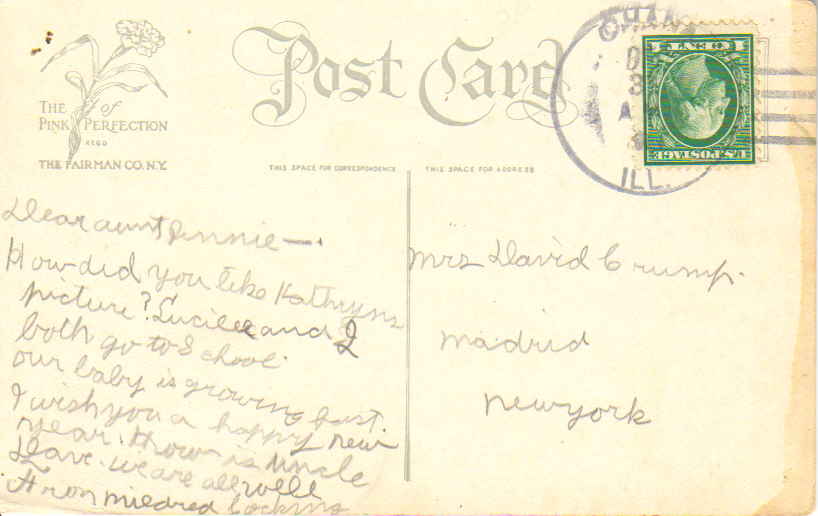 THE of
PINK PERFECTION
REGD
THE FAIRMAN CO. N.Y.
Post Card
THIS SPACE FOR CORRESPONDENCE
THIS SPACE FOR ADDRESS
CHANA
ILL.
U.S. POSTAGE
ONE CENT
Dear aunt Pennie—.
How did you like Kathryns
picture? Lucile and I
both go to School.
our baby is growing fast.
I wish you a happy new
year. How is uncle
Dave. we are all well
From mildred
Mrs David Crump.
madrid
newyork